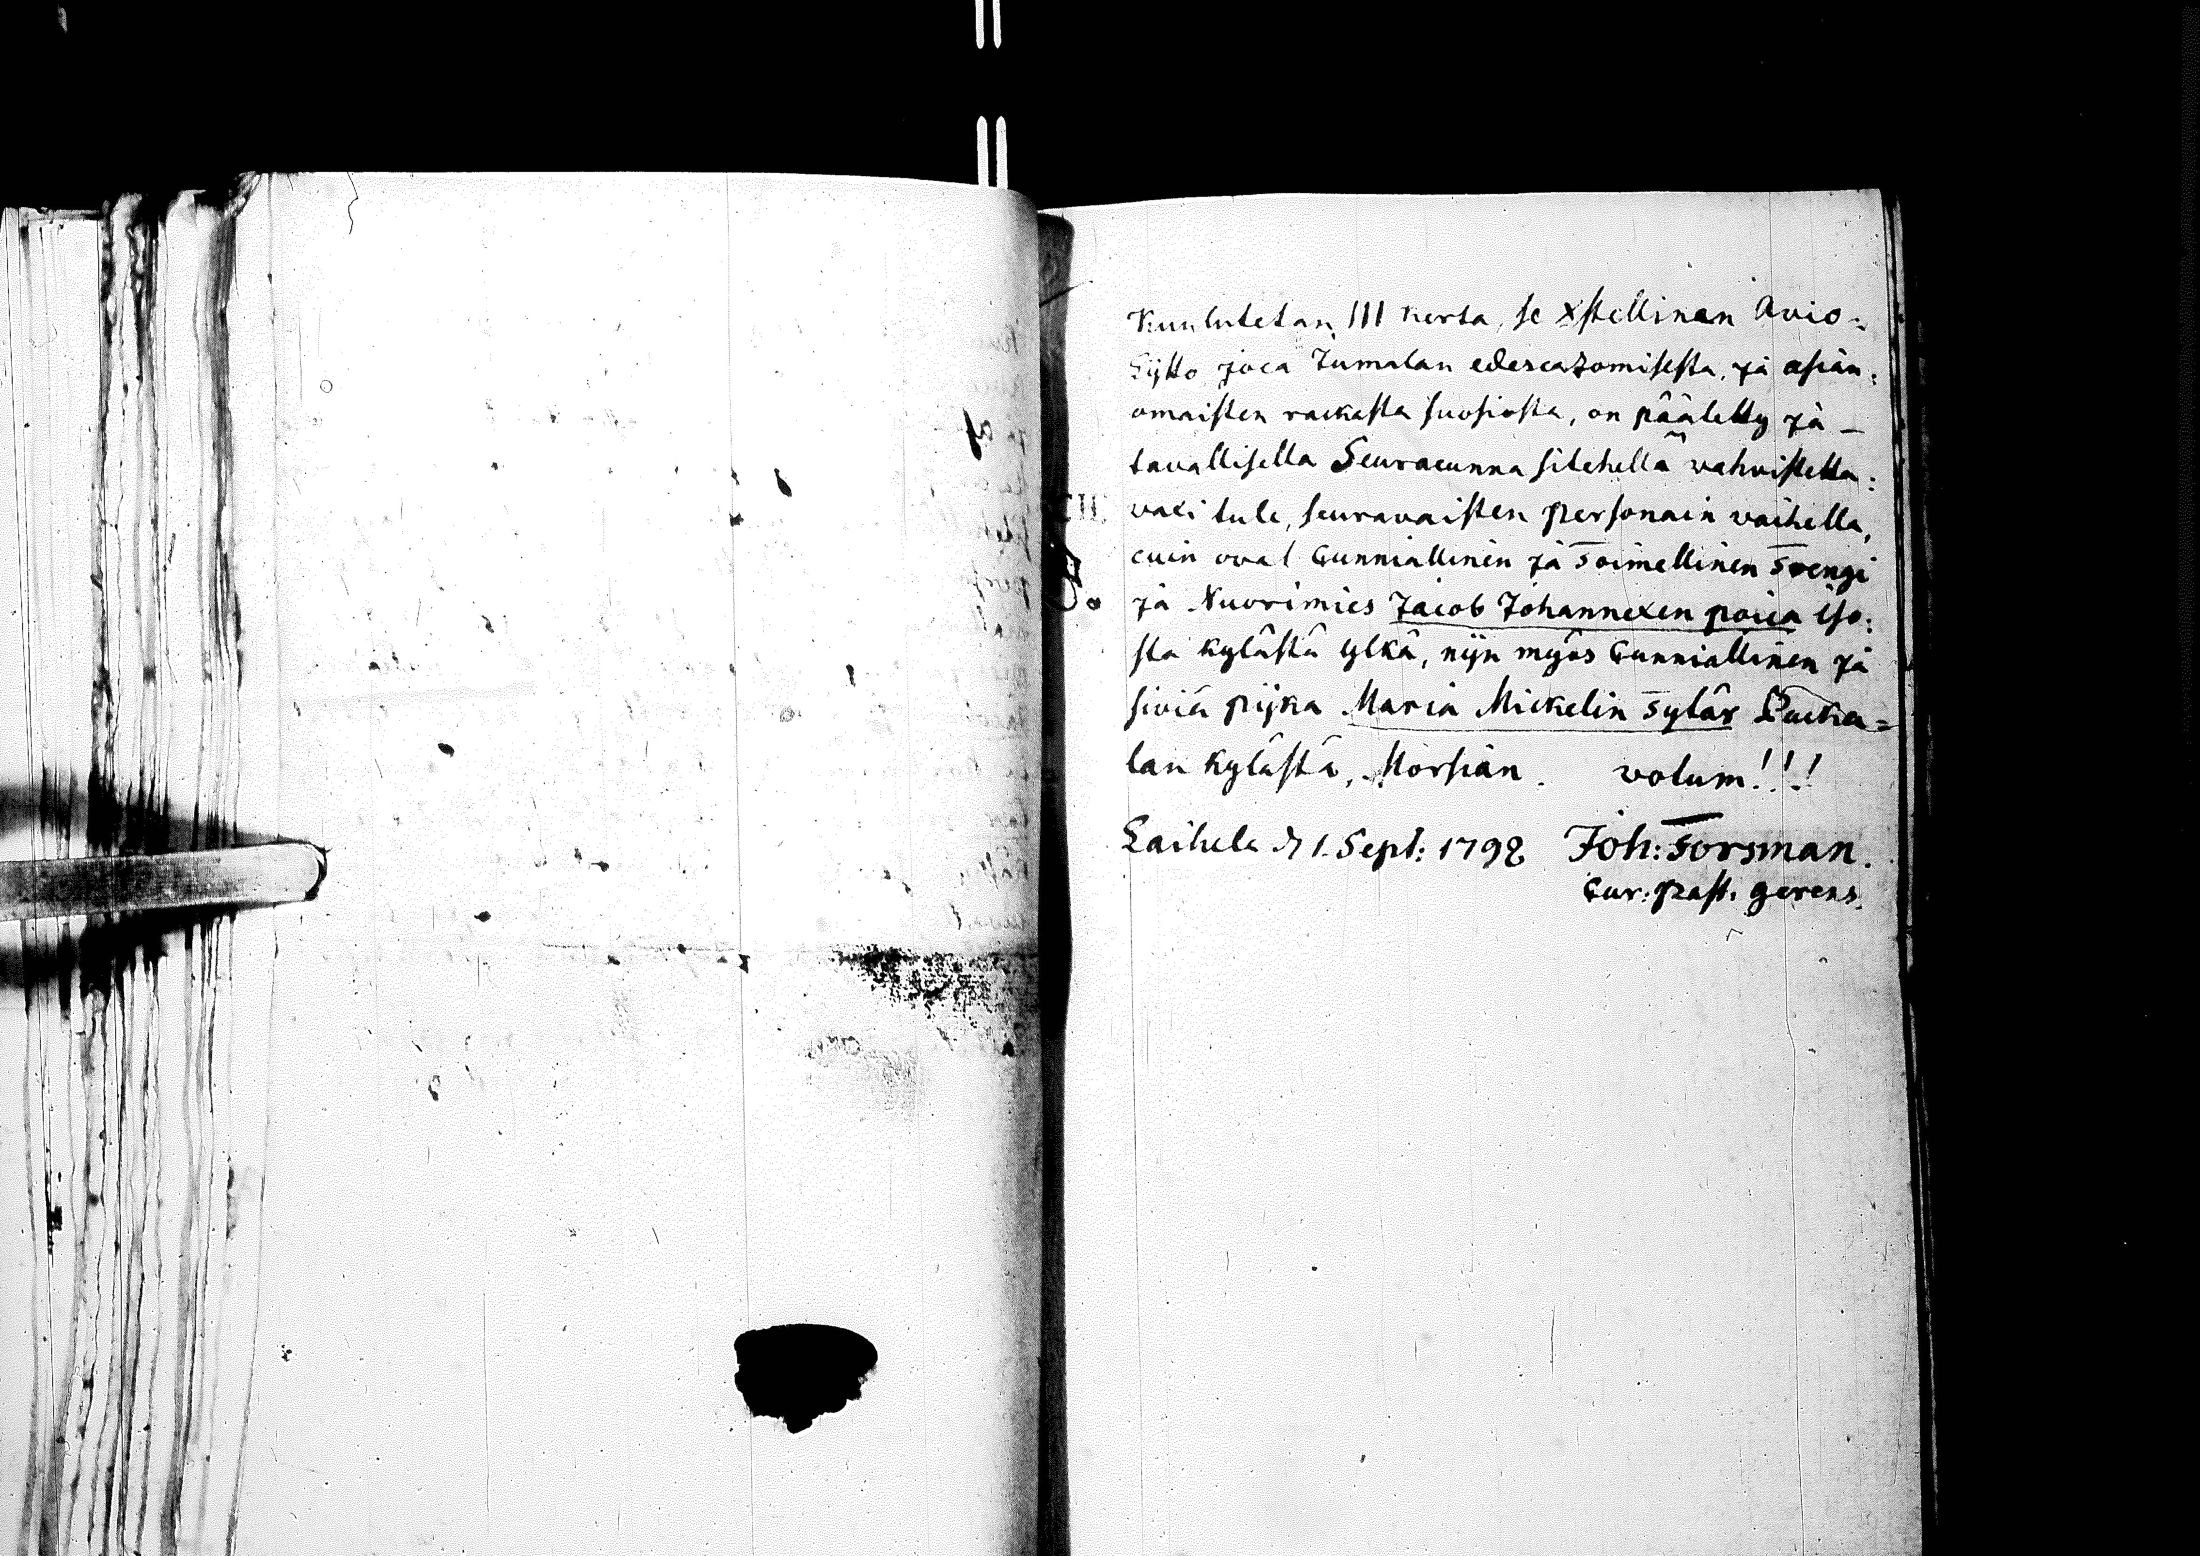 Kuulutetan III kerta, se Xstellinen Avio-
Lijtto joca Jumalan edescatzomisesta, ja asian:
omaisten rackasta suosiosta, on päätetty ja -
tavallisella Seuracunna sitehellä wahvistetta:
vaxi tule, seuravaisten personain vaihella,
cuin ovat Cunniallinen ja Toimellinen Trengi
ja Nuorimies Jacob Johannexen poica Iso:
sta kylästä ylkä, nijn myös Cunniallinen ja
siviä pijka Maria Mickelin Tytär
lan kylästä, Morsian. votum!!!
Laihela d 1. Sept: 1798 Joh: Forsman.
Cur: past. gerens.